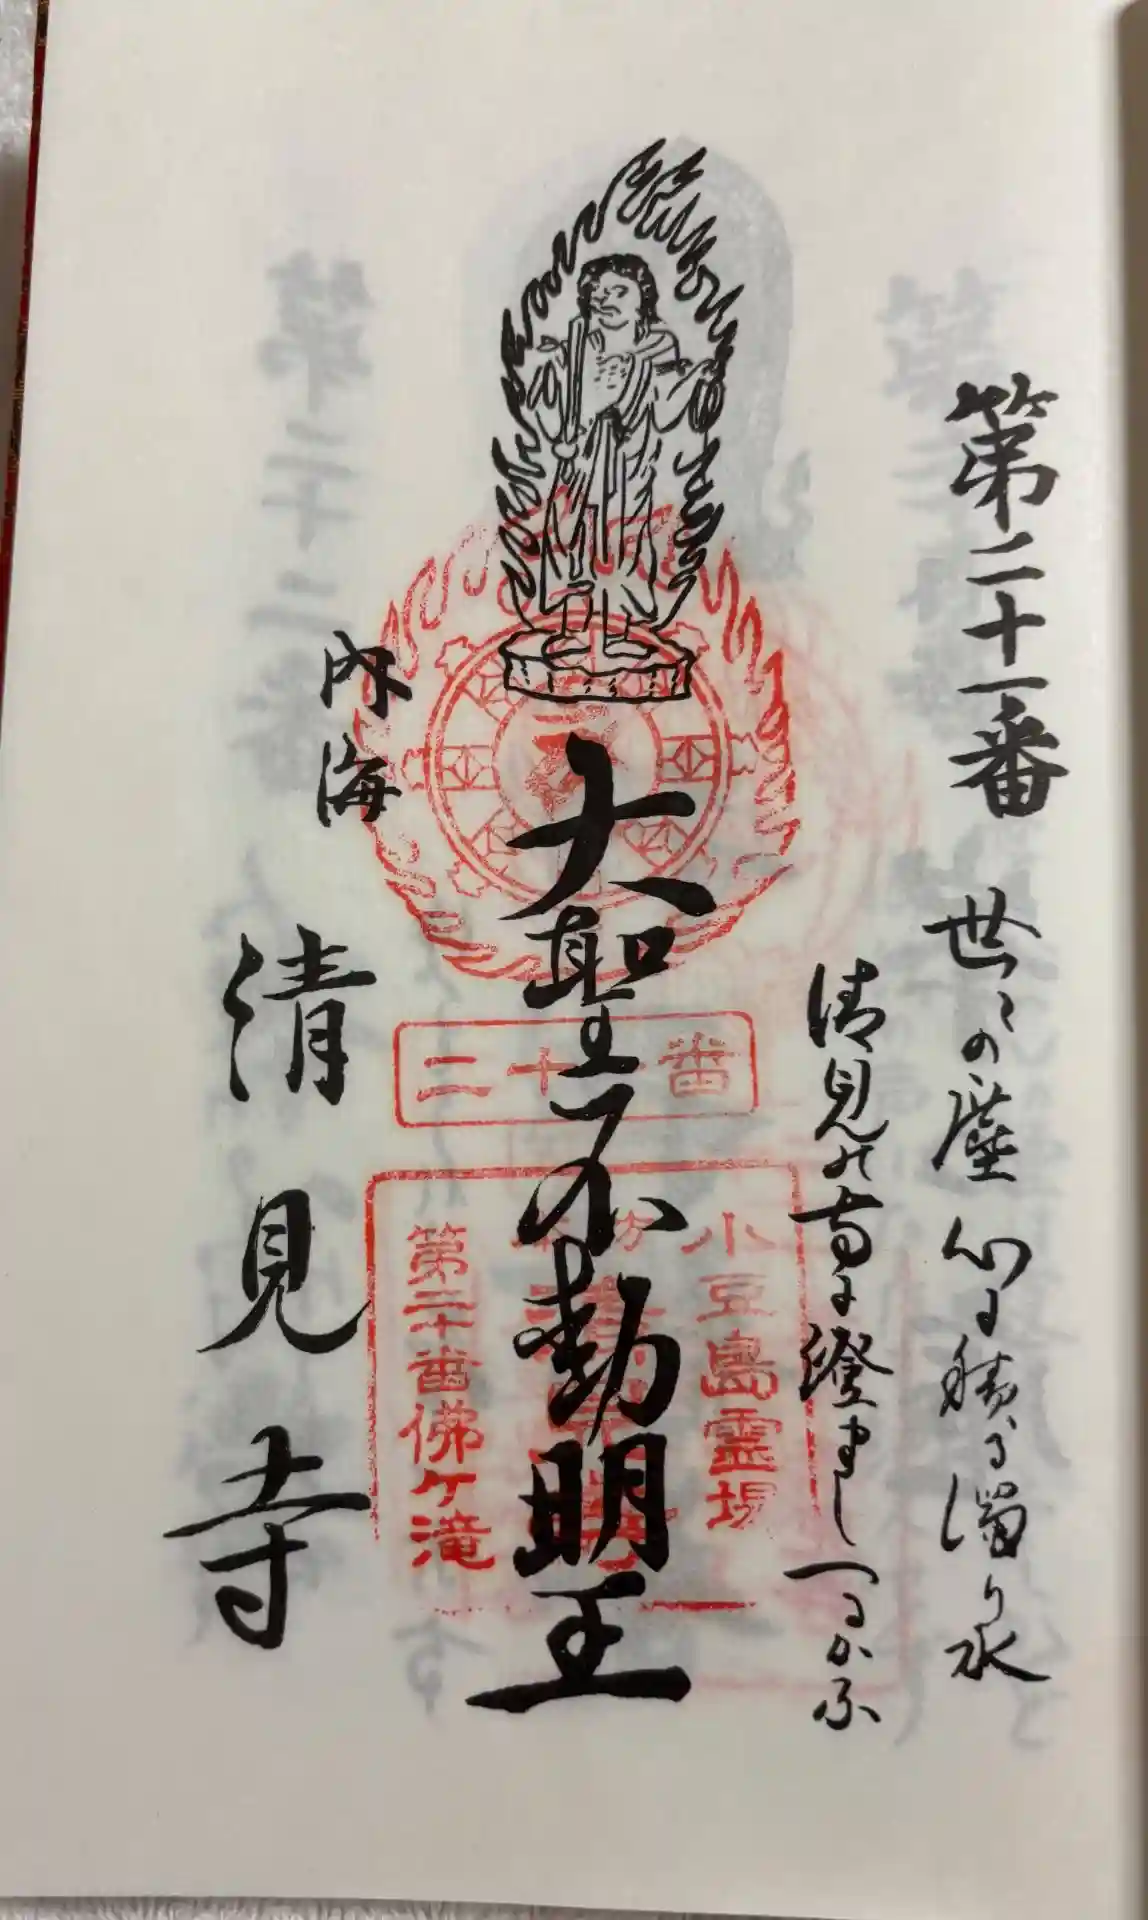 第二十一番
世々の塵心に積る濁り水
清見の寺に澄まし
大聖不動明王
内海
清見寺
二十一番
小豆島霊場
第二十番佛ヶ滝